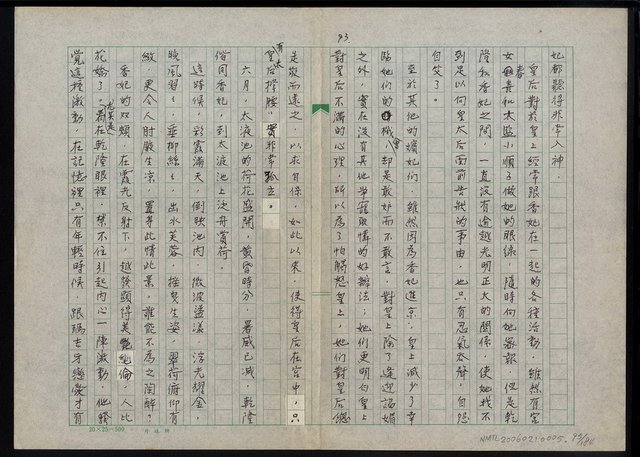 93
妃都聽得非常入神。
皇后對於皇上經常跟香妃在一起的各種活動，雖然有宮
女春喜和太監小順子做她的眼線，隨時向她密報，但是乾
隆和香妃之間，一直沒有逾越光明正大的關係，使她找不
到足以向皇太后面前告狀的事由，也只有忍氣吞聲，自怨
自艾了。
至於其他的嬪妃們，雖然因為香妃進京，皇上減少了幸
臨她們的機會，却是敢妒而不敢言，對皇上除了逢迎諂媚
之外，實在沒有其他爭寵取憐的好辦法；她們更明白皇上
對皇后不滿的心理，所以為了怕觸怒皇上，她們對皇后總
是敬而遠之，以求自保，如此以來，使得皇后在宮中，只
皇后撐腰，實非常孤立。
六月，太液池的荷花盛開，黃昏時分，暑威已減，乾隆
偕同香妃，到太液池上泛舟賞荷。
這時候，彩霞滿天，倒映池內，微波盪漾，浮光耀金，
晚風習習，垂柳絲絲，出水芙蓉，搖曳生姿，翠荷俯仰有
緻，更令人肘腋生涼，置身此情此景，誰能不為之陶醉？
香妃的双頰，在霞光反射下，越發顯得美艷絕倫，人比
花嬌了，看在乾隆眼裡，禁不住引起內心一陣激動，他發
覺這種激動，在記憶裡只有年輕時候，跟瑪吉牙戀愛才有
20×25=500
NMTL20060210005
93/184